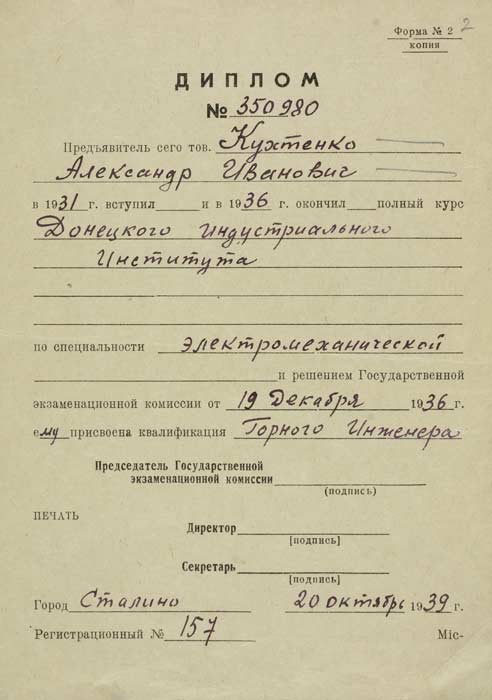 Форма № 2 2
копия
ДИПЛОМ
№ 350980
Предъявитель сего тов. Кухтенко
Александр Иванович
в 1931 г. вступил и в 1936 г. окончил полный курс
Донецкого Индустриального
Института
по специальности электромеханической
и решением Государственной
экзаменационной комиссии от 19 Декабря 1936 г.
ему присвоена квалификация Горного Инженера
Председатель Государственной
экзаменационной комиссии
(подпись)
ПЕЧАТЬ
Директор
[подпись]
Секретарь
[подпись]
Город Сталино 20 октябрь 1939 г.
Регистрационный № 157 Міс-